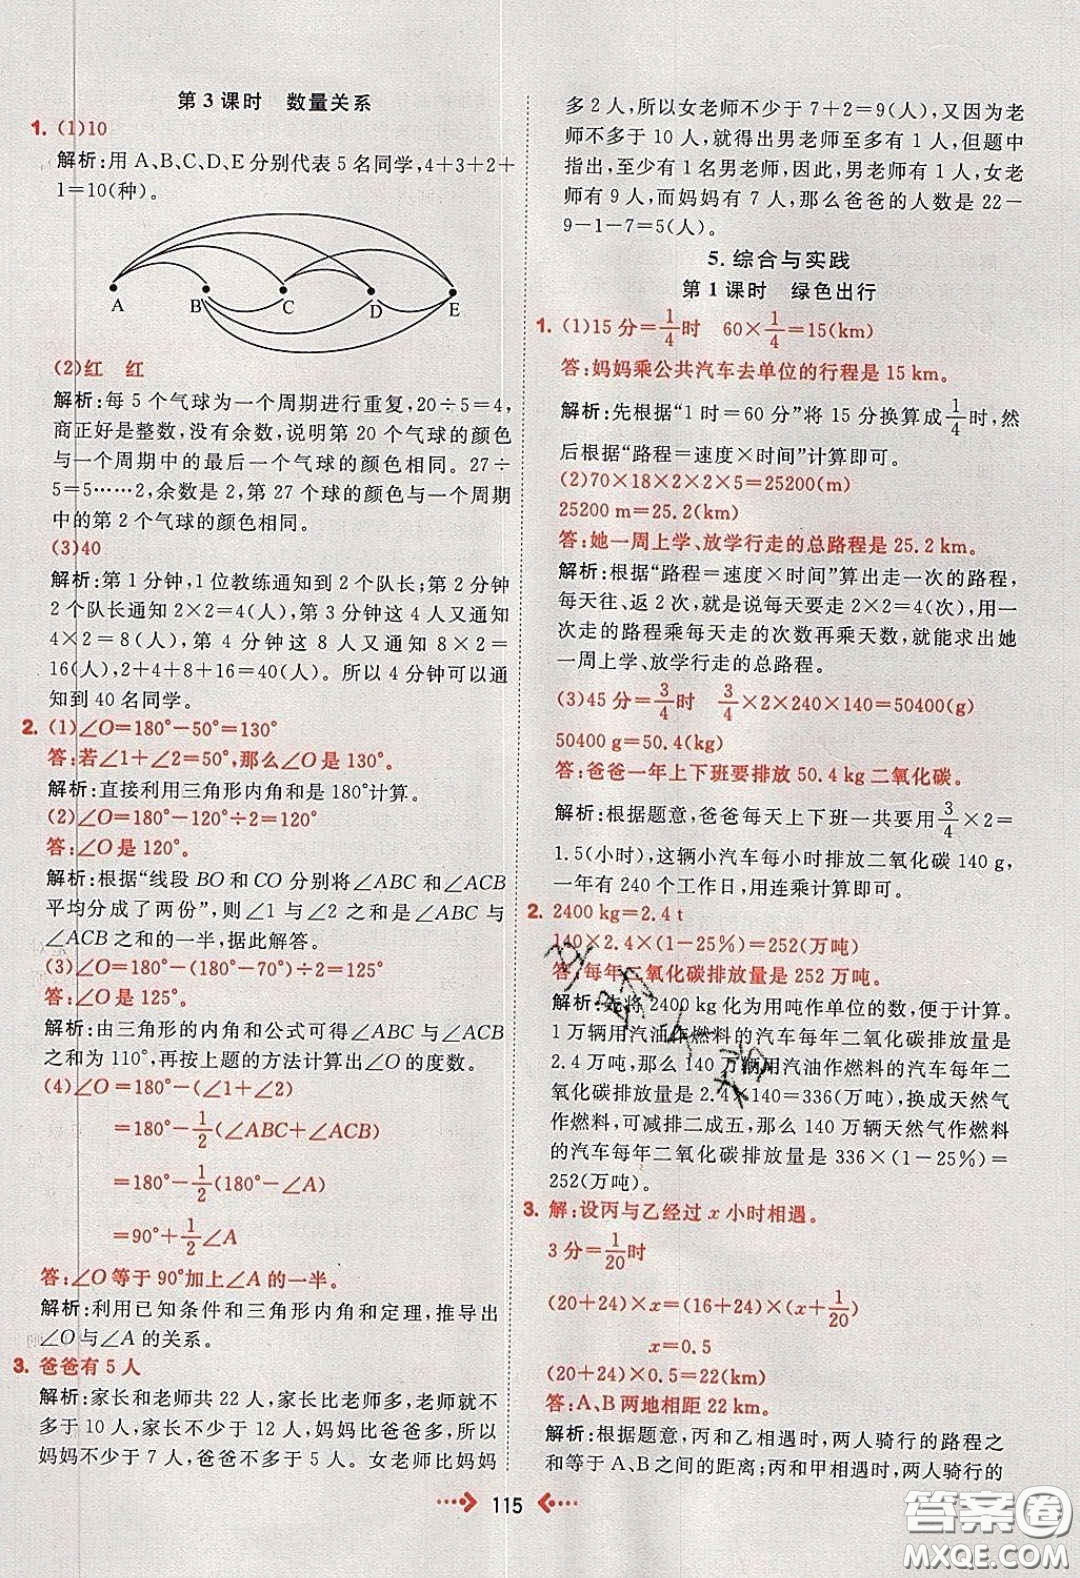 第3课时　数量关系
1. (1)10
解析:用A、B、C、D、E分别代表5名同学,4+3+2+
1=10(种)。
A B C D E
(2)红　红
解析:每5个气球为一个周期进行重复,20÷5=4,
商正好是整数,没有余数,说明第20个气球的颜色
与一个周期中的最后一个气球的颜色相同。27÷
5=5……2,余数是2,第27个球的颜色与一个周期
中的第2个气球的颜色相同。
(3)40
解析:第1分钟,1位教练通知到2个队长;第2分钟,
2个队长通知2×2=4(人),第3分钟这4人又通知
4×2=8(人),第4分钟这8人又通知8×2=
16(人),2+4+8+16=40(人)。所以4分钟可以通
知到40名同学。
2. (1)∠O=180°-50°=130°
答:若∠1+∠2=50°,那么∠O是130°。
解析:直接利用三角形内角和是180°计算。
(2)∠O=180°-120°÷2=120°
答:∠O是120°。
解析:根据“线段BO和CO分别将∠ABC和∠ACB
平均分成了两份”,则∠1与∠2的和是∠ABC与
∠ACB之和的一半,据此解答。
(3)∠O=180°-(180°-70°)÷2=125°
答:∠O是125°。
解析:由三角形的内角和公式可得∠ABC与∠ACB
之和为110°,再按上题的方法计算出∠O的度数。
(4)∠O=180°-(∠1+∠2)
=180°-1/2(∠ABC+∠ACB)
=180°-1/2(180°-∠A)
=90°+1/2∠A
答:∠O等于90°加上∠A的一半。
解析:利用已知条件和三角形内角和定理,推导出
∠O与∠A的关系。
3. 爸爸有5人
解析:家长和老师共22人,家长比老师多,老师就不
多于10人,家长不少于12人,妈妈比爸爸多,所以
妈妈不少于7人,爸爸不多于5人。女老师比妈妈
多2人,所以女老师不少于7+2=9(人),又因为老
师不多于10人,就得出男老师至多有1人,但题中
指出,至少有1名男老师,因此,男老师有1人,女老
师有9人,而妈妈有7人,那么爸爸的人数是22-
9-1-7=5(人)。
5.综合与实践
第1课时　绿色出行
1. (1)15分=1/4时　60×1/4=15(km)
答:妈妈乘公共汽车去单位的行程是15 km。
解析:先根据“1时=60分”将15分换算成1/4时,然
后根据“路程=速度×时间”计算即可。
(2)70×18×2×2×5=25200(m)
25200 m=25.2(km)
答:她一周上学、放学行走的总路程是25.2 km。
解析:根据“路程=速度×时间”算出走一次的路程,
每天往、返2次,就是说每天要走2×2=4(次),用一
次走的路程乘每天走的次数再乘天数,就能求出她
一周上学、放学行走的总路程。
(3)45分=3/4时　3/4×2×240×140=50400(g)
50400 g=50.4(kg)
答:爸爸一年上下班要排放50.4 kg二氧化碳。
解析:根据题意,爸爸每天上下班一共要用3/4×2=
1.5(小时),这辆小汽车每小时排放二氧化碳140 g,
一年有240个工作日,用连乘计算即可。
2. 2400 kg=2.4 t
140×2.4×(1-25%)=252(万吨)
答:每年二氧化碳排放量是252万吨。
解析:先将2400 kg化为用吨作单位的数,便于计算。
1万辆用汽油作燃料的汽车每年二氧化碳排放量是
2.4万吨,那么140万辆用汽油作燃料的汽车每年二
氧化碳排放量是2.4×140=336(万吨),换成天然气
作燃料,可减排二成五,那么140万辆天然气作燃料
的汽车每年二氧化碳排放量是336×(1-25%)=
252(万吨)。
3. 解:设丙与乙经过x小时相遇。
3分=1/20时
(20+24)×x=(16+24)×(x+1/20)
x=0.5
(20+24)×0.5=22(km)
答:A、B两地相距22 km。
解析:根据题意,丙和乙相遇时,两人骑行的路程之
和等于A、B之间的距离;丙和甲相遇时,两人骑行的
115
答案圈
MXQE.COM